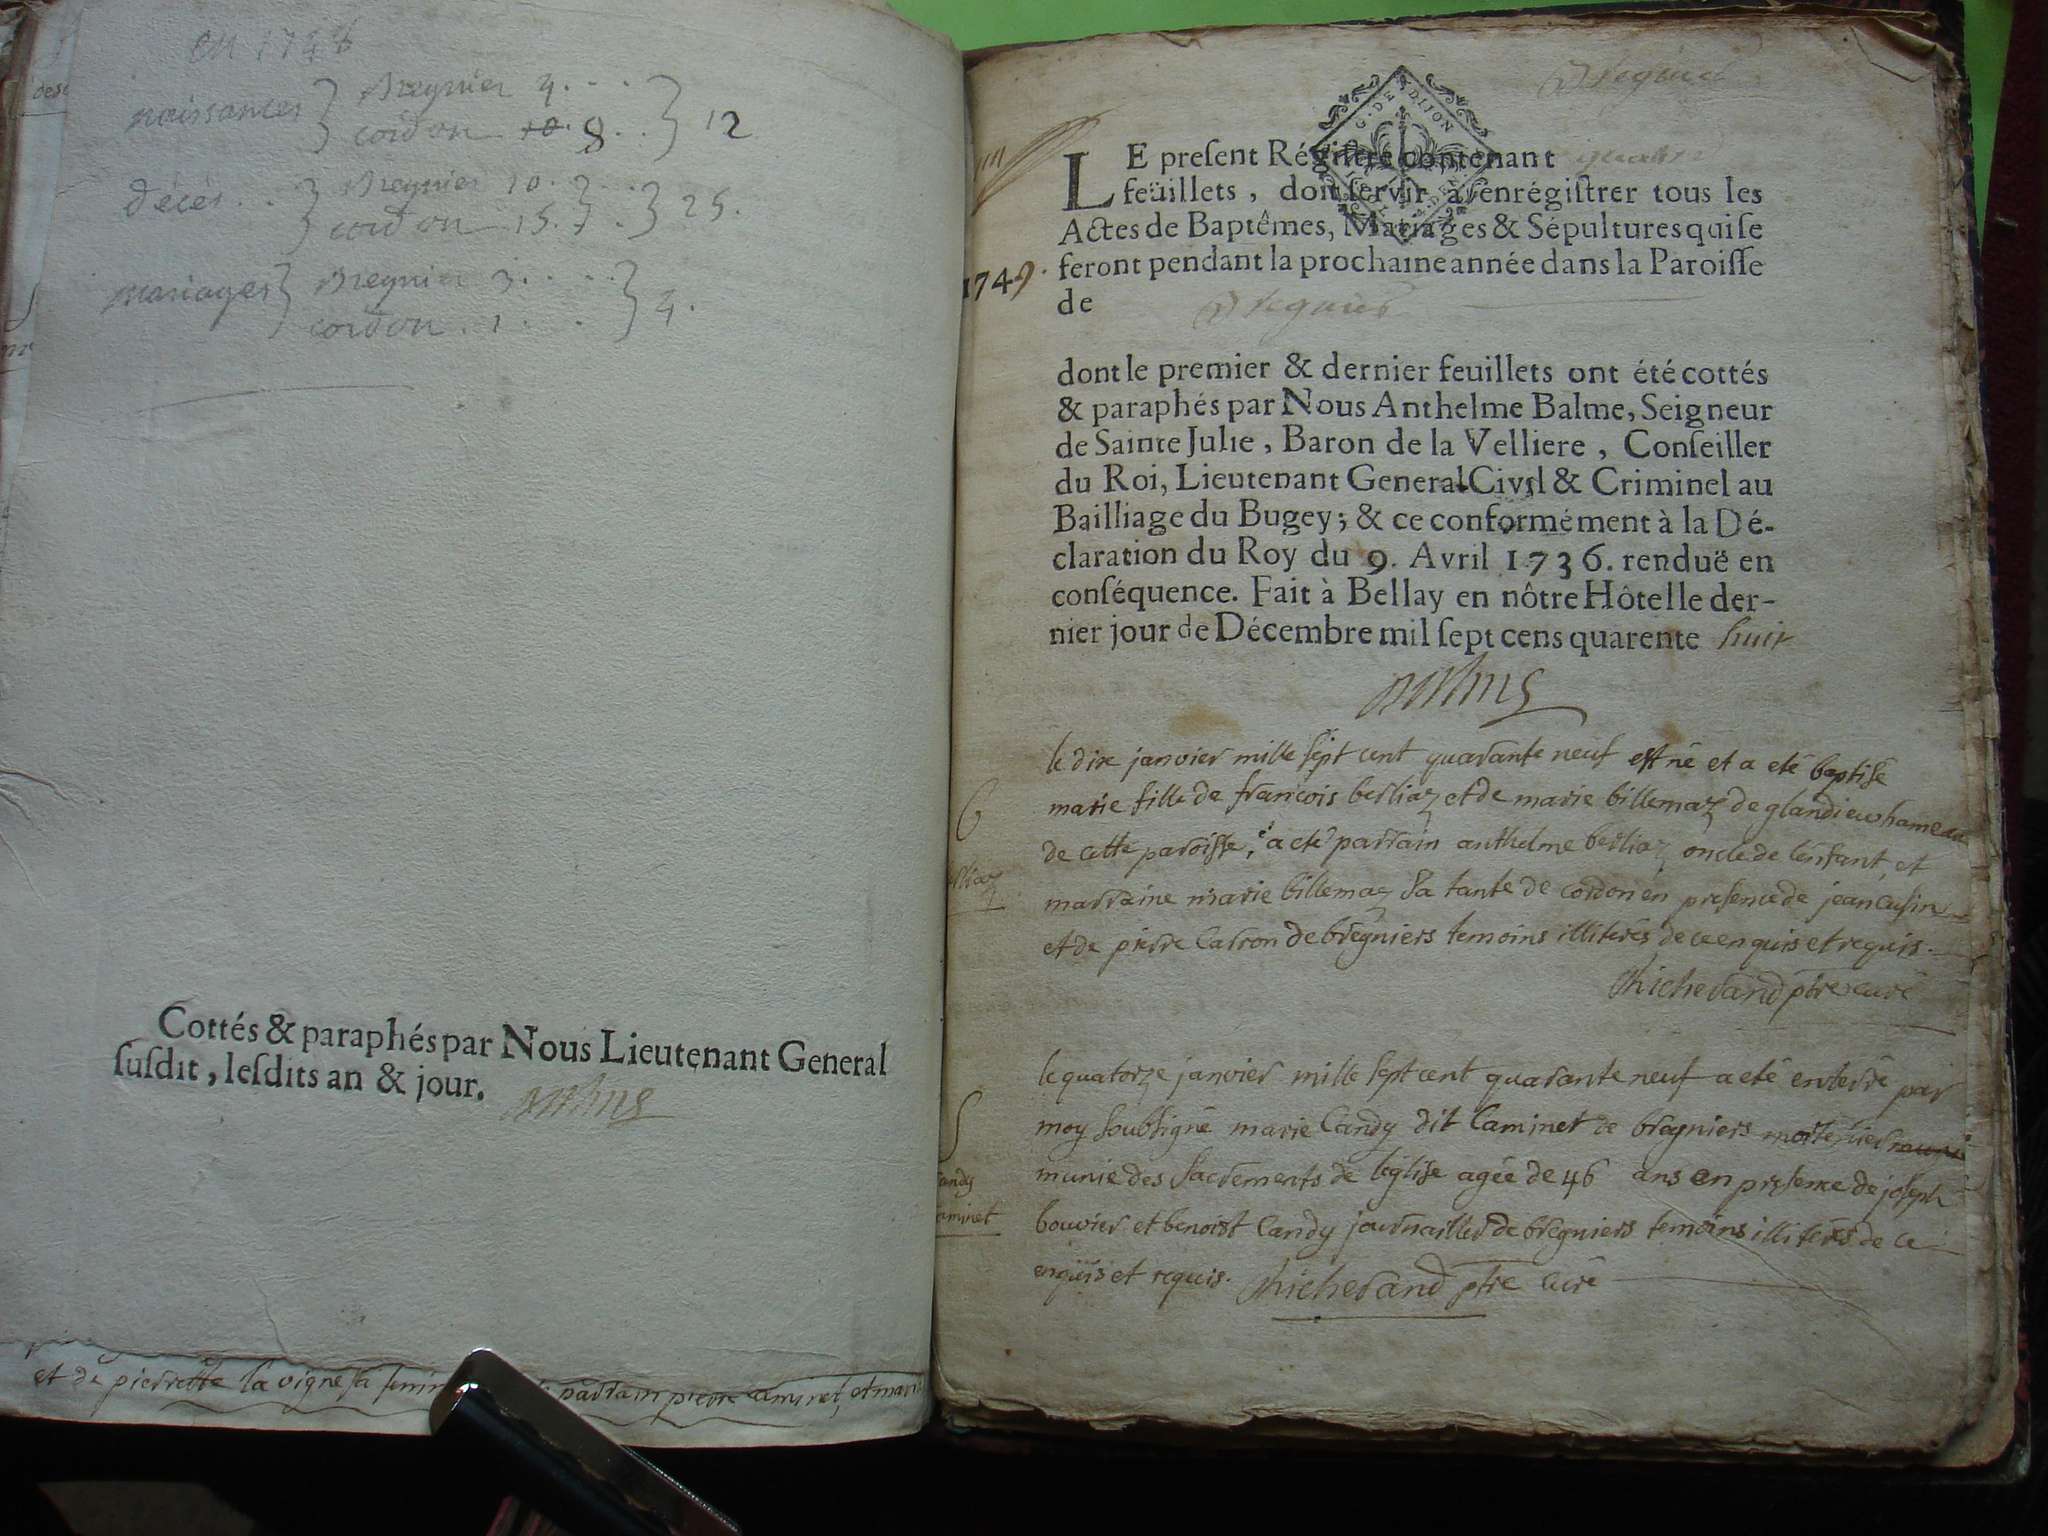 en 1748
naissances } Bregnier 4 . . . } 12
cordon 10. 8 . . }
décès . . } Bregnier 10 . } . . } 25.
cordon 15. } . }
mariages } Bregnier 3 . . . . } 4.
cordon . 1 . . }
Cottés & paraphés par Nous Lieutenant General
susdit, lesdits an & jour.
et de pierrette la vigne sa parrain pierre caminet, et mari
G. DE DIJON
LE preſent Régiſtre contenant
feüillets, doit ſervir à enrégiſtrer tous les
Actes de Baptêmes, Mariages & Sépultures qui ſe
feront pendant la prochaine année dans la Paroiſſe
1749.
de
dont le premier & dernier feuillets ont été cottés
& paraphés par Nous Anthelme Balme, Seigneur
de Sainte Julie, Baron de la Velliere, Conſeiller
du Roi, Lieutenant General Civil & Criminel au
Bailliage du Bugey; & ce conformément à la Dé-
claration du Roy du 9. Avril 1736. renduë en
conſéquence. Fait à Bellay en nôtre Hôtel le der-
nier jour de Décembre mil ſept cens quarente huit
le dix janvier mille sept cent quarante neuf est né et a eté baptisé
marie fille de francois berliaz et de marie billemaz de glandieu hameau
de cette paroisse, a eté parrain anthelme berliaz oncle de lenfant, et
marraine marie billemaz sa tante de cordon en presence de jean cusin
et de pierre carron de bregniers temoins illiterés de ce enquis et requis.
Richerand ptre curé
le quatorze janvier mille sept cent quarante neuf a eté enterré par
moy soubsigné marie Candy dit Caminet de bregniers morte hier
munie des sacrements de leglise agée de 46 ans en presence de joseph
andy
bouvier et benoist Candy journaillier de bregniers temoins illiterés de ce
aminet
enquis et requis. Richerand ptre curé